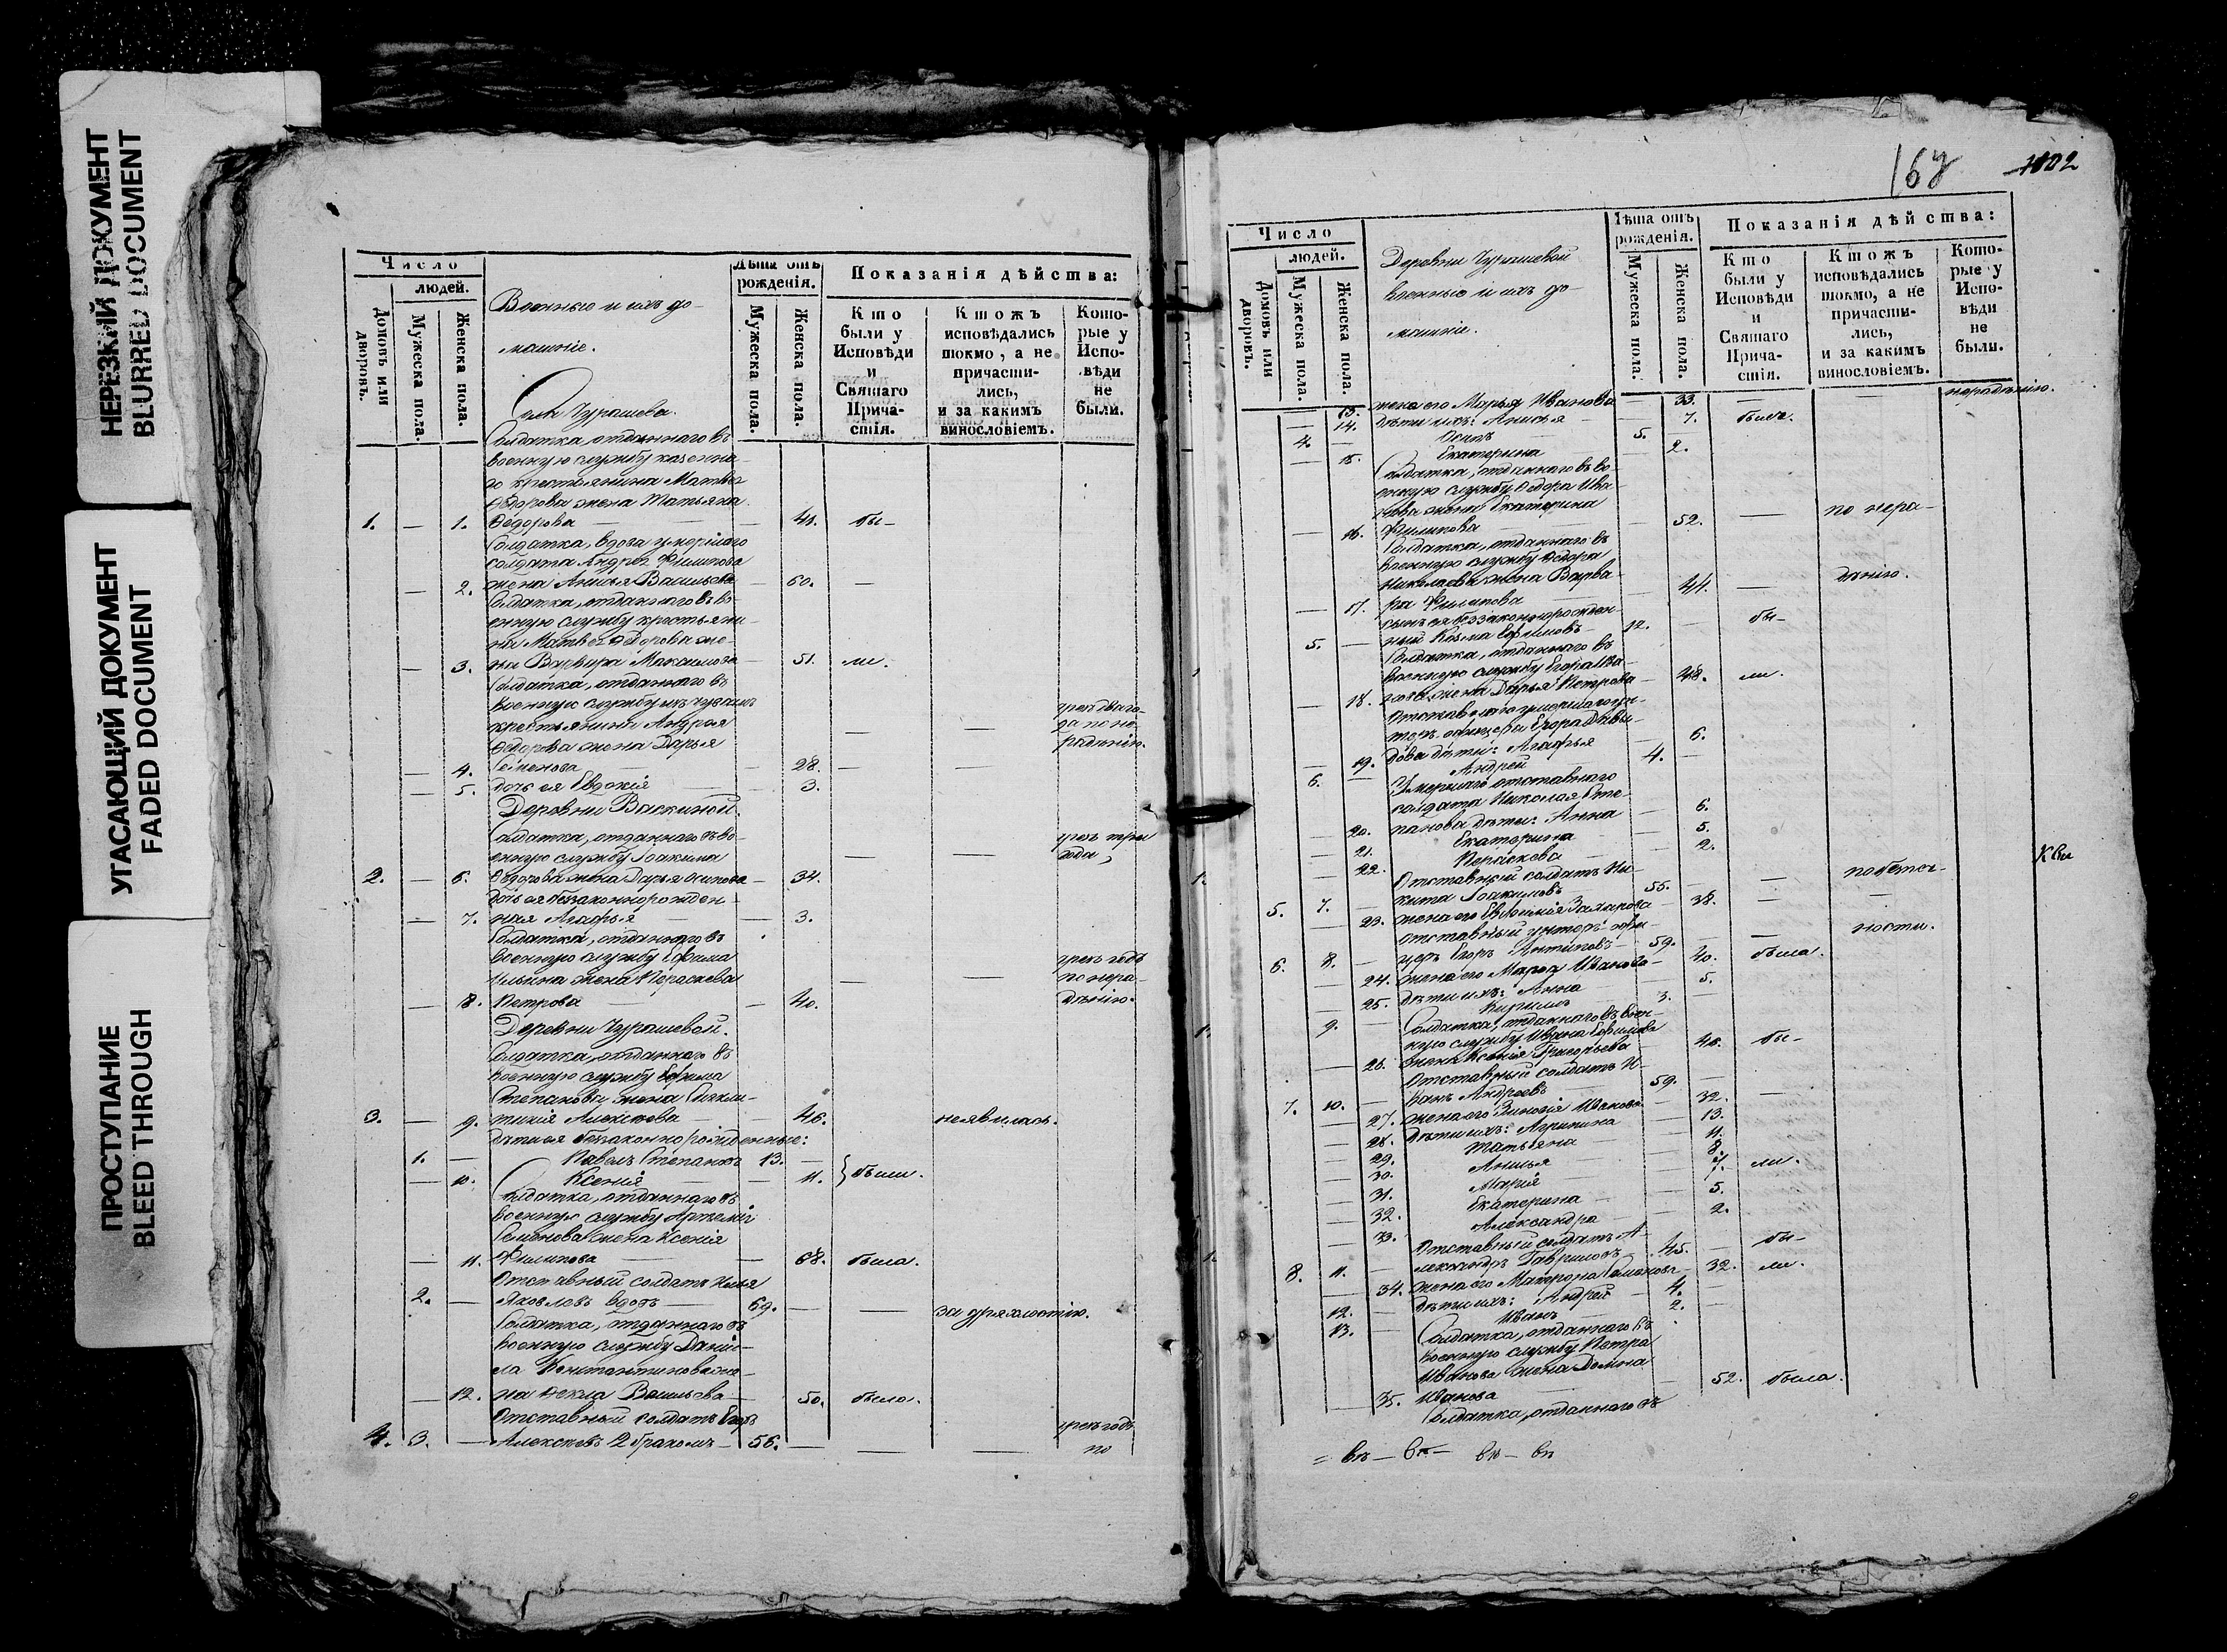 НЕРЕЗКИЙ ДОКУМЕНТ
BLURRED DOCUMENT
УГАСАЮЩИЙ ДОКУМЕНТ
FADED DOCUMENT
ПРОСТУПАНИЕ
BLEED THROUGH
Число
людей.
Домовъ или дворовъ.
Мужеска пола.
Женска пола.
Военные и ихъ до-
машніе.
Лѣта отъ
рожденія.
Мужеска пола.
Женска пола.
Показанія дѣйства:
Кто
были у
Исповѣди
и
Святаго
Прича-
стія.
Ктожъ
исповѣдались
токмо, а не
причасти-
лись,
и за какимъ
винословіемъ.
Кото-
рые у
Испо-
вѣди
не
были.
Села Чурашева.
Солдатка, отданнаго въ
военную службу казенна-
го крестьянина Матвея
Ѳедорова жена Татьяна
1. — 1. Ѳедорова — — 41. бы-
Солдатка, вдова умершаго
солдата Андрея Филипова
— 2. жена Анисья Васильева — 60. —
Солдатка, отданнаго въ во-
енную службу крестьяни-
на Матвея Ѳедорова же-
— 3. на Варвара Максимова — 51. ли.
Солдатка, отданнаго въ
военную службу изъ чувашъ
крестьянина Андрея
Ѳедорова жена Дарья — — раденію.
— 4. Семенова — 28. — —
— 5. дочь ея Евдокія — 3.
Деревни Васкиной.
Солдатка, отданнаго въ во-
енную службу Іоакима — — года,
2. — 6. Ѳедорова жена Дарья Осипова — 34.
дочь ея беззаконнорожден-
— 7. ная Агафья — — 3.
Солдатка, отданнаго въ
военную службу Ефима
Ильина жена Параскева — — по нера-
— 8. Петрова — — 40. дѣнію.
Деревни Чурашевой.
Солдатка, отданнаго въ
военную службу Ефима
Степанова жена
3. — 9. Алексѣева — 46. неявилась.
дѣти ея беззаконнорожденные:
1. — Павелъ Степановъ 13. —
— 10. Ксенія — — 11. } были.
Солдатка, отданнаго въ
военную службу Артемія
Семенова жена Ксенія
— 11. Филипова — — 68. была.
Отставный солдатъ Илья
2. — Яковлевъ вдовъ — 69. — — за дряхлостію.
Солдатка, отданнаго въ
военную службу Дані-
ла Константинова же-
— 12. на Ѳекла Васильева — 50. была.
Отставный солдатъ Егоръ
4. 3. — Алексѣевъ 2 бракомъ — 56. — — — по
167
1022
Число
людей.
Домовъ или дворовъ.
Мужеска пола.
Женска пола.
Деревни Чурашевой
военные и ихъ до-
машніе.
Лѣта отъ
рожденія.
Мужеска пола.
Женска пола.
Показанія дѣйства:
Кто
были у
Исповѣди
и
Святаго
Прича-
стія.
Ктожъ
исповѣдались
токмо, а не
причасти-
лись,
и за какимъ
винословіемъ.
Кото-
рые у
Испо-
вѣди
не
были.
— 13. жена его Марья Иванова — 33. — — нераденію.
— 14. дѣти ихъ: Анисья — 7. были.
4. — Осипъ — 5. —
— 15. Екатерина — 2.
Солдатка, отданнаго въ во-
енную службу Ѳедора Ива-
нова жена Екатерина
— 16. Филипова — 52. — по нера-
Солдатка, отданнаго въ
военную службу Ѳедора
Николаева жена Варва-
— 17. ра Филипова — 44. — дѣнію.
сынъ ея беззаконнорожден-
5. — ный Козма Ефимовъ — 12. — бы-
Солдатка, отданнаго въ
военную службу Егора Ива-
— 18. нова жена Дарья Петрова — 48. ли.
Отставнаго умершаго ун-
теръ офицера Егора
— 19. дѣти: Агафья — 6.
6. — Андрей 4. —
Умершаго отставнаго
солдата Николая Сте-
— 20. панова дѣти: Анна — 6.
— 21. Екатерина — 5.
— 22. Параскева — 2.
Отставный солдатъ Ни-
5. 7. — кита Іоакимовъ 55. — —
— 23. жена его Евгенія Захарова — 38. —
Отставный унтеръ офи- ности.
6. 8. — церъ Егоръ Антиповъ — 59. — —
— 24. жена его Марѳа Иванова — 40. была.
— 25. дѣти ихъ: Анна — 5.
9. — Кириллъ 3. —
Солдатка, отданнаго въ воен-
ную службу Ивана Ефимова
— 26. жена Ксенія Григорьева — 46. бы-
Отставный солдатъ И-
7. 10. — ванъ Андреевъ — 59. —
— 27. жена его Зиновія Иванова — 32. —
— 28. дѣти ихъ: Агрипина — 13.
— 29. Татьяна — 11.
— 30. Анисья — 8.
— 31. Марія — 7. ли.
— 32. Екатерина — 5.
— 33. Александра — 2.
Отставный солдатъ А-
8. 11. — лександръ Гавриловъ — 45. — бы-
— 34. жена его Матрона Семенова — 32. ли.
12. — дѣти ихъ: Андрей — 4. —
13. — Иванъ 2. —
Солдатка, отданнаго въ
военную службу Петра
Иванова жена Домна
— 35. Иванова — 52. была.
Солдатка, отданнаго въ